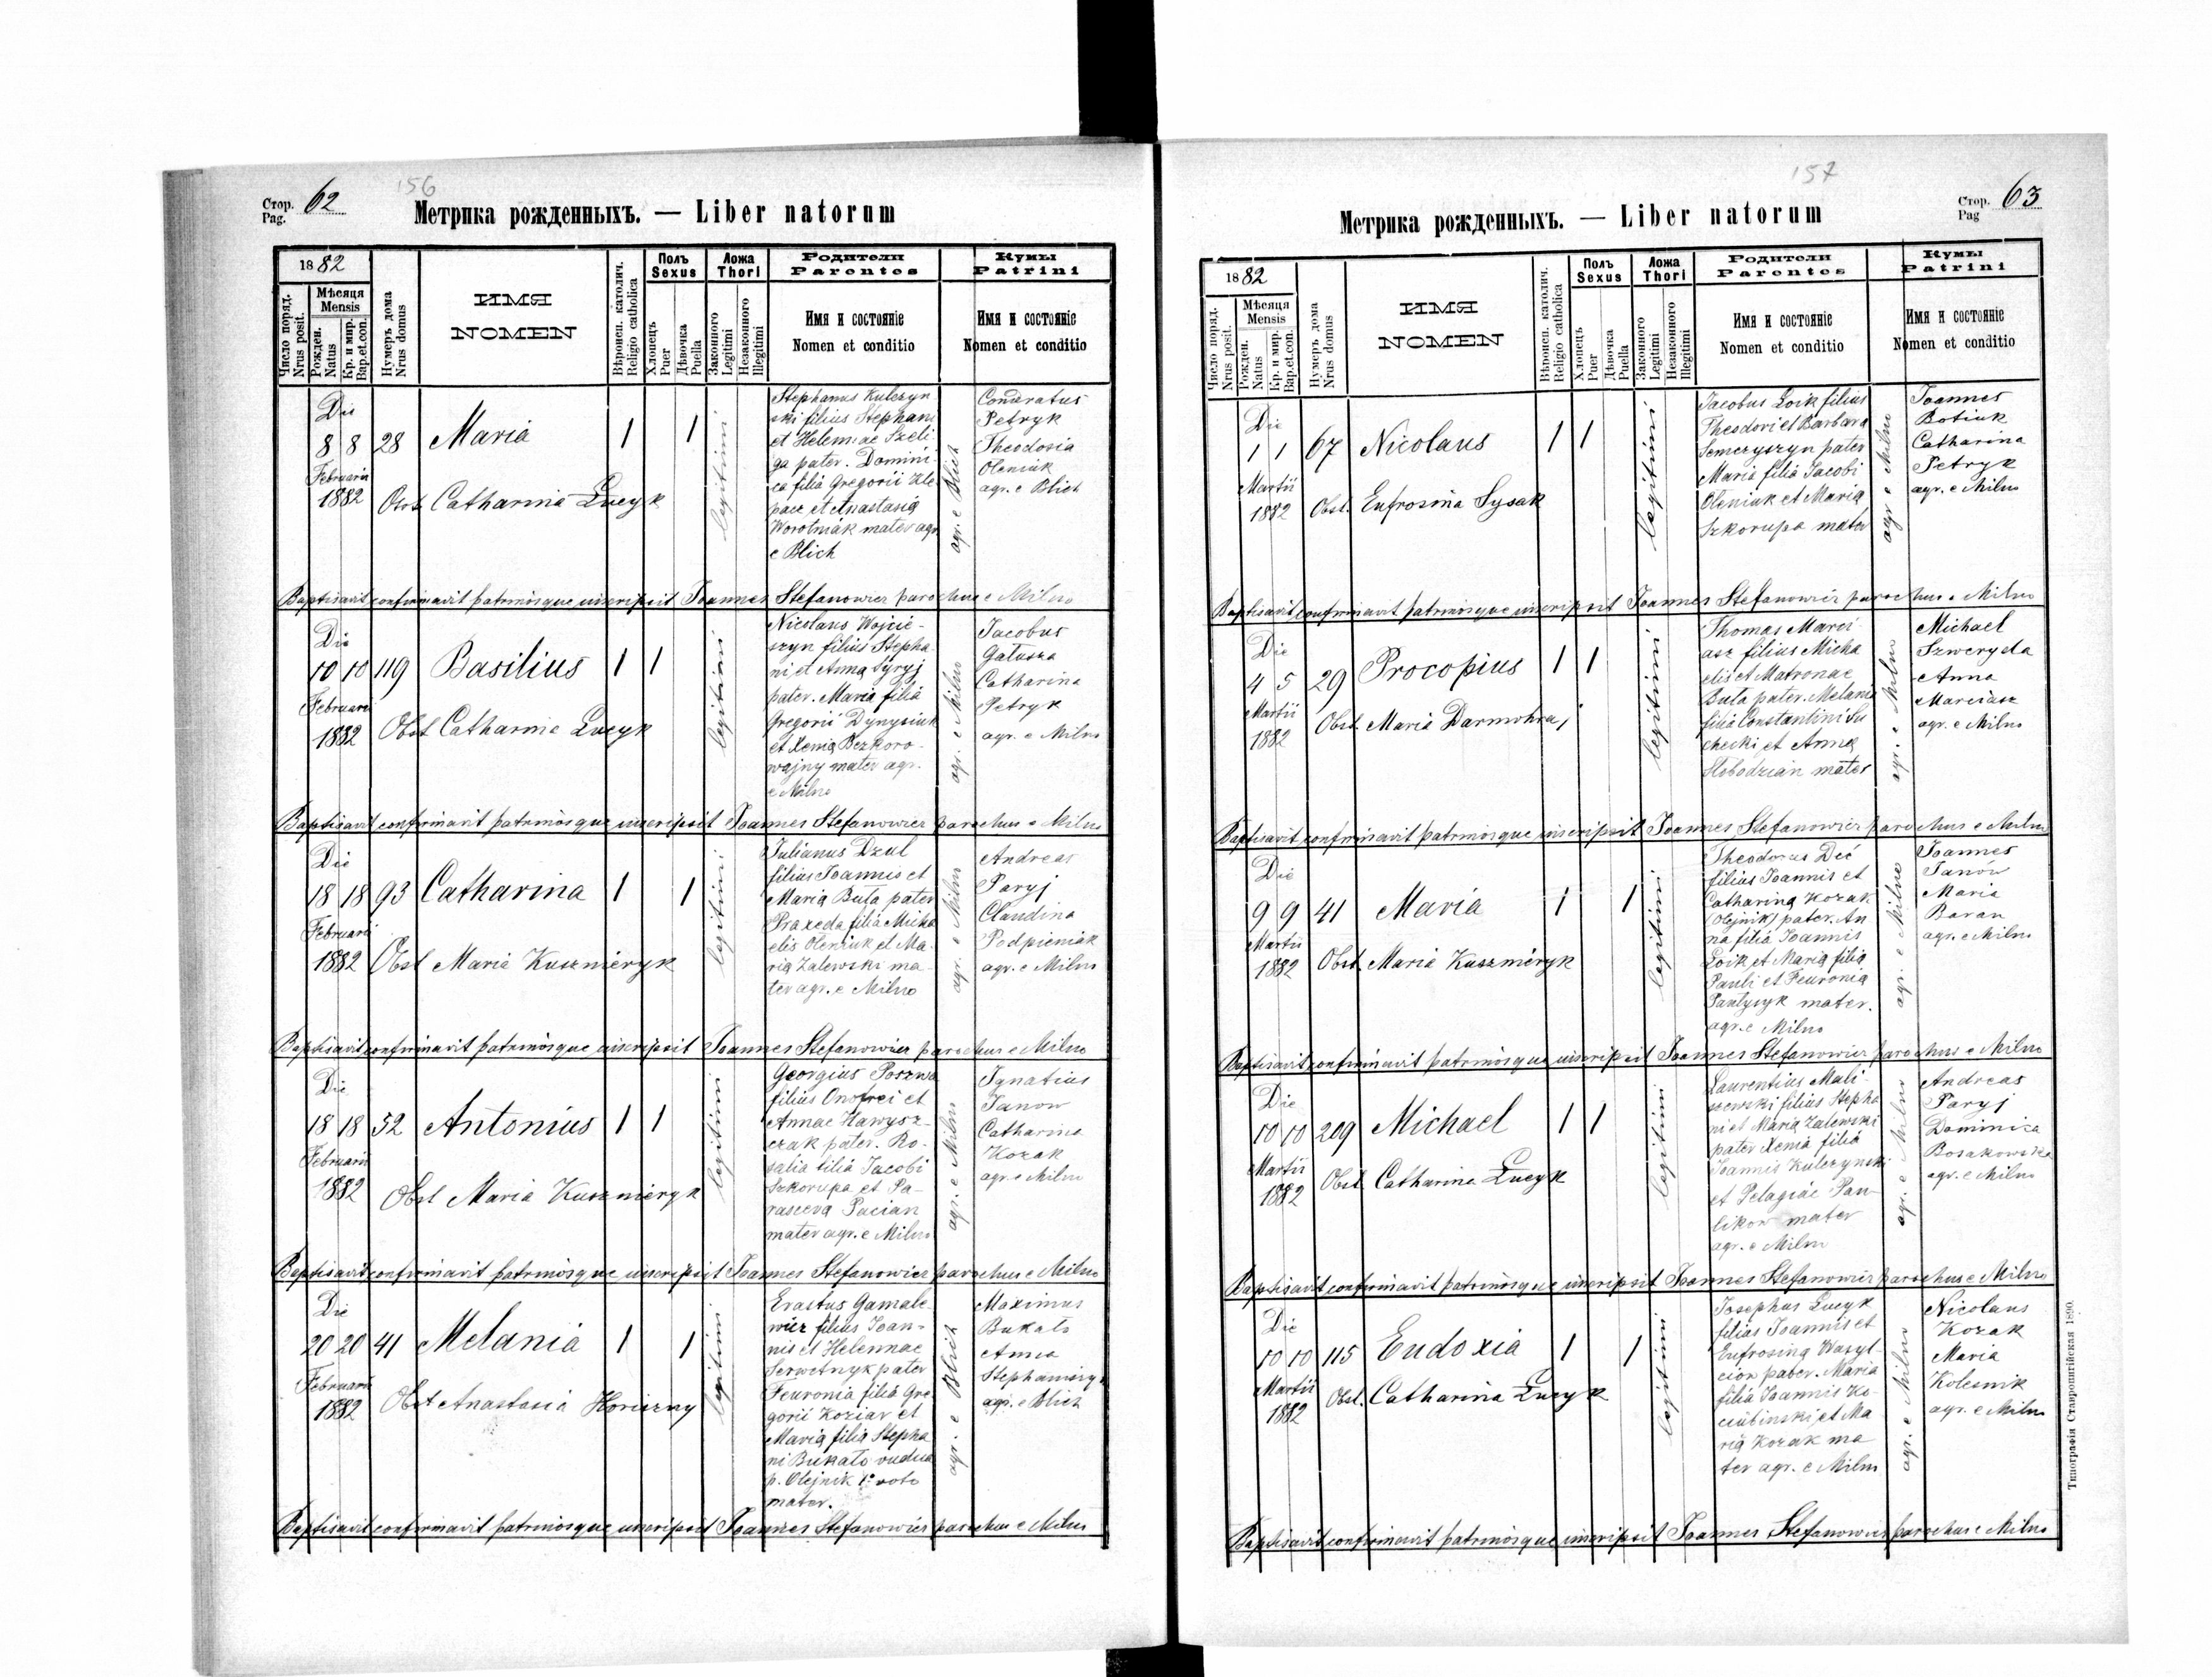 156
Стор.
Pag. 62
Метрика рожденныхъ. — Liber natorum
1882
Число поряд.
Nrus posit.
Мѣсяця
Mensis
Рожден.
Natus
Кр. и мир.
Bap.et.con.
Нумеръ дома
Nrus domus
ИМЯ
NOMEN
Вѣроисп. католич.
Religio catholica
Полъ
Sexus
Хлопецъ
Puer
Дѣвочка
Puella
Ложа
Thori
Законного
Legitimi
Незаконного
Illegitimi
Родители
Parentes
Имя и состоянїе
Nomen et conditio
Кумы
Patrini
Имя и состоянїе
Nomen et conditio
Die
8 8 28 Maria 1 1
Februarii
1882
Obst Catharina Łucyk
legitimi
Stephanus Kulczyn
ski filius Stephani
et Helennae Szeli
ga pater. Domini
ca filia Gregorii Kle
pacz et Anastasia
Worotniak mater agr.
e Blich
agr. e Blich
Condratus
Petryk
Theodosia
Oleniuk
agr. e Blich
Baptisavit confirmavit patrinosque inscripsit Joannes Stefanowicz parochus e Milno
Die
10 10 119 Basilius 1 1
Februarii
1882
Obst Catharina Łucyk
legitimi
Nicolaus Wojcie-
szyn filius Stepha
ni et Anna Syryj
pater. Maria filia
Gregorii Dynysiuk
et Xenia Bezkoro-
wajny mater agr.
e Milno
agr. e Milno
Jacobus
Gałuszka
Catharina
Petryk
agr. e Milno
Baptisavit confirmavit patrinosque inscripsit Joannes Stefanowicz parochus e Milno
Die
18 18 93 Catharina 1 1
Februarii
1882
Obst Maria Kuszmeryk
legitimi
Julianus Dzul
filius Joannis et
Maria Buta pater
Praxeda filia Micha
elis Oleniuk et Ma-
ria Zalewski ma-
ter agr. e Milno
agr. e Milno
Andreas
Paryj
Claudina
Podpieniak
agr. e Milno
Baptisavit confirmavit patrinosque inscripsit Joannes Stefanowicz parochus e Milno
Die
18 18 52 Antonius 1 1
Februarii
1882
Obst Maria Kuszmeryk
legitimi
Georgius Poszwa
filius Onofrei et
Annae Hawysz-
czak pater. Ro-
salia filia Jacobi
Szkorupa et Pa-
rasceva Pacian
mater agr. e Milno
agr. e Milno
Ignatius
Janow
Catharina
Kozak
agr. e Milno
Baptisavit confirmavit patrinosque inscripsit Joannes Stefanowicz parochus e Milno
Die
20 20 41 Melania 1 1
Februarii
1882
Obst Anastasia Horiszny
legitimi
Erastus Gamale-
wicz filius Joan-
nis et Helennae
Serwetnyk pater
Feuronia filia Gre
gorii Koziar et
Maria filia Stepha
ni Bukato vudua
p. Olejnik 1º voto
mater.
agr. e Blich
Maximus
Bukato
Anna
agr. e Blich
Baptisavit confirmavit patrinosque inscripsit Joannes Stefanowicz parochus e Milno
157
Стор.
Pag 63
Метрика рожденныхъ. — Liber natorum
1882
Число поряд.
Nrus posit.
Мѣсяця
Mensis
Рожден.
Natus
Кр. и мир.
Bap.et.con.
Нумеръ дома
Nrus domus
ИМЯ
NOMEN
Вѣроисп. католич.
Religio catholica
Полъ
Sexus
Хлопецъ
Puer
Дѣвочка
Puella
Ложа
Thori
Законного
Legitimi
Незаконного
Illegitimi
Родители
Parentes
Имя и состоянїе
Nomen et conditio
Кумы
Patrini
Имя и состоянїе
Nomen et conditio
Die
1 1 67 Nicolaus 1 1
Martii
1882
Obst. Eufrosina Sysak
legitimi
Jacobus Łoik filius
Theodori et Barbara
Semczyszyn pater
Maria filia Jacobi
Oleniuk et Maria
Szkorupa mater
agr e Milno
Joannes
Botiuk
Catharina
Petryk
agr. e Milno
Baptisavit confirmavit patrinosque inscripsit Joannes Stefanowicz parochus e Milno
Die
4 5 29 Procopius 1 1
Martii
1882
Obst. Maria Darmohraj
legitimi
Thomas Marci
asz filius Micha
elis et Matronae
Buta pater. Melania
filia Constantini Su
checki et Anna
Słobodzian mater
agr. e Milno
Michael
Szweryda
Anna
Marciasz
agr. e Milno
Baptisavit confirmavit patrinosque inscripsit Joannes Stefanowicz parochus e Milno
Die
9 9 41 Maria 1 1
Martii
1882
Obst. Maria Kuszmeryk
legitimi
Theodorus Deć
filius Joannis et
Catharina Kozak
(Olejnik) pater. An
na filia Joannis
Łoik et Maria filia
Pauli et Feuronia
Pantycyk mater.
agr. e Milno
agr. e Milno
Joannes
Janów
Maria
Baran
agr. e Milno
Baptisavit confirmavit patrinosque inscripsit Joannes Stefanowicz parochus e Milno
Die
10 10 209 Michael 1 1
Martii
1882
Obst Catharina Łucyk
legitimi
Laurentius Mali-
szewski filius Stepha
ni et Maria Zalewski
pater Xenia filia
Joannis Kulczynski
et Pelagiae Paw
likow mater
agr. e Milno
agr. e Milno
Andreas
Paryj
Dominica
Bosakowska
agr. e Milno
Baptisavit confirmavit patrinosque inscripsit Joannes Stefanowicz parochus e Milno
Die
10 10 115 Eudoxia 1 1
Martii
1882
Obst. Catharina Łucyk
legitimi
Josephus Łucyk
filius Joannis et
Eufrosina Wasyl-
cion pater. Maria
filia Joannis Ko-
ciubinski et Ma
ria Kozak ma
ter agr. e Milno
agr. e Milno
Nicolaus
Kozak
Maria
Kolesnik
agr. e Milno
Baptisavit confirmavit patrinosque inscripsit Joannes Stefanowicz parochus e Milno
Типографія Ставропигійская 1890.